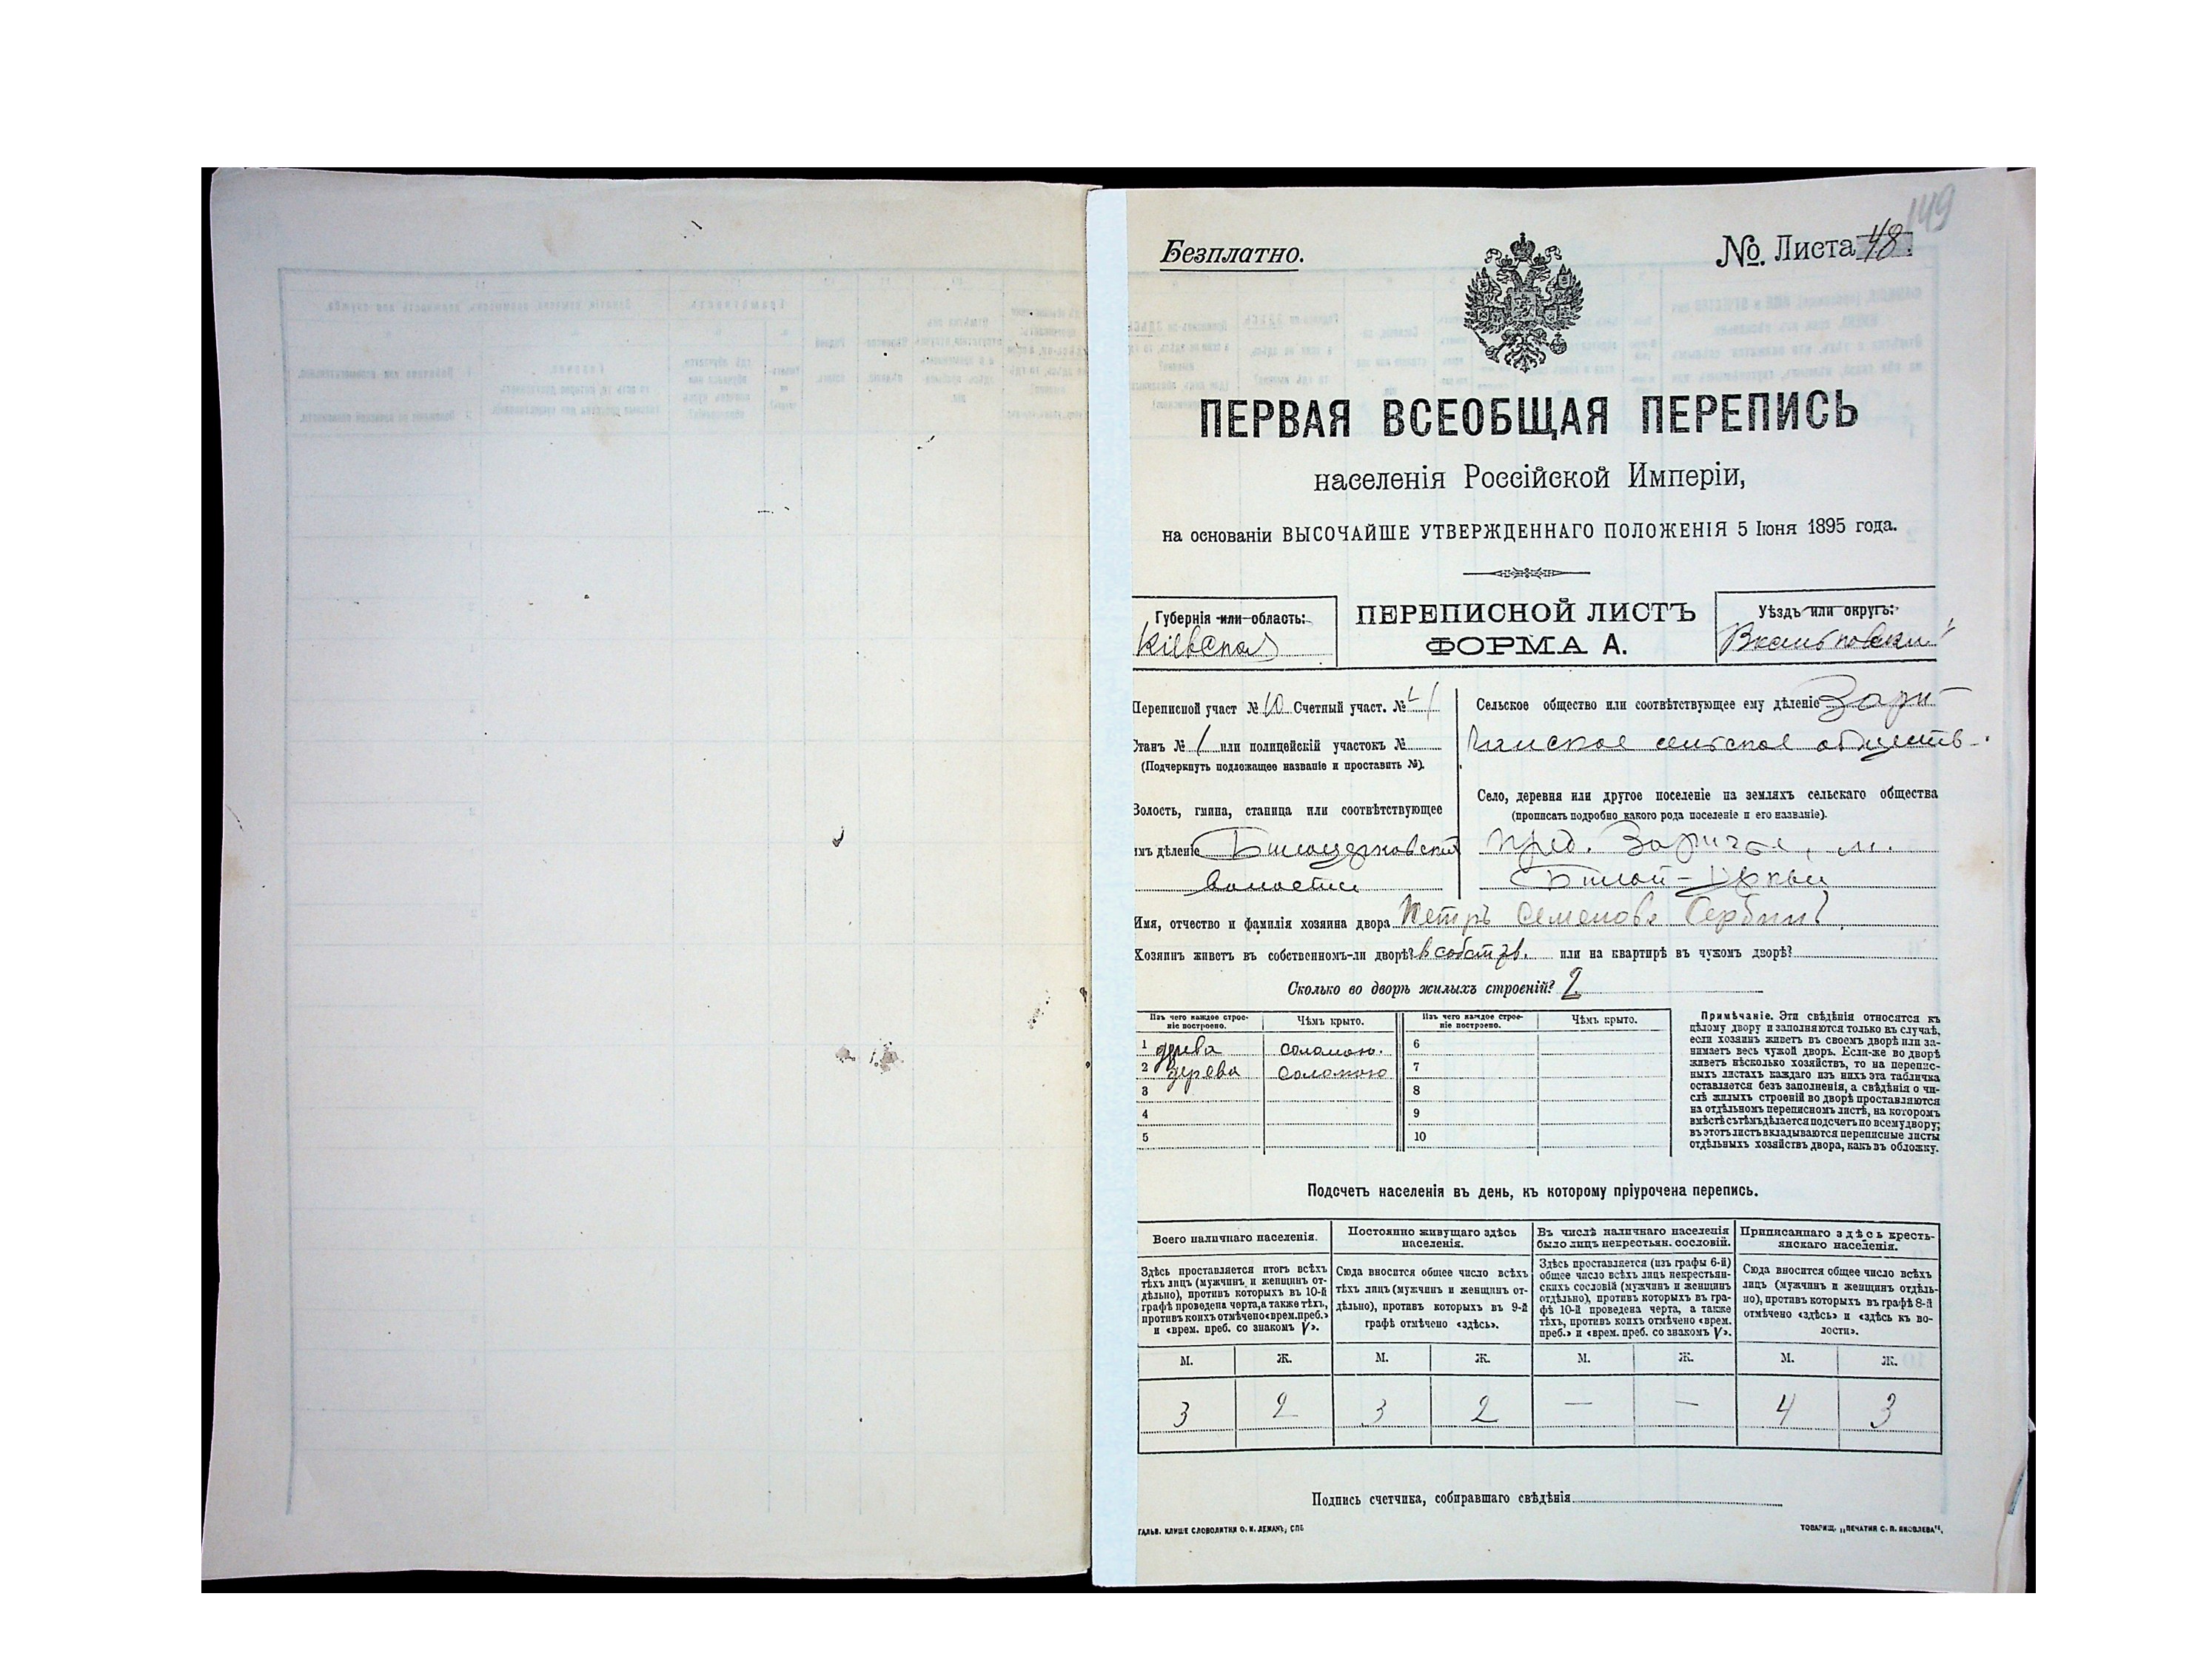 149
Безплатно.
№ Листа 48.
ПЕРВАЯ ВСЕОБЩАЯ ПЕРЕПИСЬ
населенія Россійской Имперіи,
на основаніи ВЫСОЧАЙШЕ УТВЕРЖДЕННАГО ПОЛОЖЕНІЯ 5 Іюня 1895 года.
Губернія или область:
Кіевская
ПЕРЕПИСНОЙ ЛИСТЪ
ФОРМА А.
Уѣздъ или округъ:
Переписной участ № 10 Счетный участ. №
Станъ № 1 или полицейскій участокъ №
(Подчеркнуть подлежащее названіе и проставить №).
Волость, гмина, станица или соотвѣтствующее
имъ дѣленіе Билоцерковской
волости
Сельское общество или соотвѣтствующее ему дѣленіе Зари-
сельское обществ
Село, деревня или другое поселеніе на земляхъ сельскаго общества
(прописать подробно какого рода поселеніе и его названіе).
пред. Заричье, м.
Билой-Церкви
Имя, отчество и фамилія хозяина двора Петръ Семеновъ
Хозяинъ живетъ въ собственномъ-ли дворѣ? в собств. или на квартирѣ въ чужомъ дворѣ?
Сколько во дворѣ жилыхъ строеній? 2
Изъ чего каждое строе-
ніе построено.
Чѣмъ крыто.
Изъ чего каждое строе-
ніе построено.
Чѣмъ крыто.
1 дерева соломою. 6
2 дерева соломою 7
3 8
4 9
5 10
Примѣчаніе. Эти свѣдѣнія относятся къ
цѣлому двору и заполняются только въ случаѣ,
если хозяинъ живетъ въ своемъ дворѣ или за-
нимаетъ весь чужой дворъ. Если-же во дворѣ
живетъ нѣсколько хозяйствъ, то на перепис-
ныхъ листахъ каждаго изъ нихъ эта табличка
оставляется безъ заполненія, а свѣдѣнія о чи-
слѣ жилыхъ строеній во дворѣ проставляются
на отдѣльномъ переписномъ листѣ, на которомъ
вмѣстѣ съ тѣмъ дѣлается подсчетъ по всему двору;
въ этотъ листъ вкладываются переписные листы
отдѣльныхъ хозяйствъ двора, какъ въ обложку.
Подсчетъ населенія въ день, къ которому пріурочена перепись.
Всего наличнаго населенія.
Здѣсь проставляется итогъ всѣхъ
тѣхъ лицъ (мужчинъ и женщинъ от-
дѣльно), противъ которыхъ въ 10-й
графѣ проведена черта, а также тѣхъ,
противъ коихъ отмѣчено «врем. преб.»
и «врем. преб. со знакомъ V».
Постоянно живущаго здѣсь
населенія.
Сюда вносится общее число всѣхъ
тѣхъ лицъ (мужчинъ и женщинъ от-
дѣльно), противъ которыхъ въ 9-й
графѣ отмѣчено «здѣсь».
Въ числѣ наличнаго населенія
было лицъ некрестьян. сословій.
Здѣсь проставляется (изъ графы 6-й)
общее число всѣхъ лицъ некрестьян-
скихъ сословій (мужчинъ и женщинъ
отдѣльно), противъ которыхъ въ гра-
фѣ 10-й проведена черта, а также
тѣхъ, противъ коихъ отмѣчено «врем.
преб.» и «врем. преб. со знакомъ V».
Приписаннаго здѣсь кресть-
янскаго населенія.
Сюда вносится общее число всѣхъ
лицъ (мужчинъ и женщинъ отдѣль-
но), противъ которыхъ въ графѣ 8-й
отмѣчено «здѣсь» и «здѣсь къ во-
лости».
М. Ж. М. Ж. М. Ж. М. Ж.
3 2 3 2 — — 4 3
Подпись счетчика, собиравшаго свѣдѣнія
ГАЛЬВ. КЛИШЕ СЛОВОЛИТНИ О. И. ЛЕМАНЪ, СПБ
ТОВАРИЩ. „ПЕЧАТНЯ С. П. ЯКОВЛЕВА“.